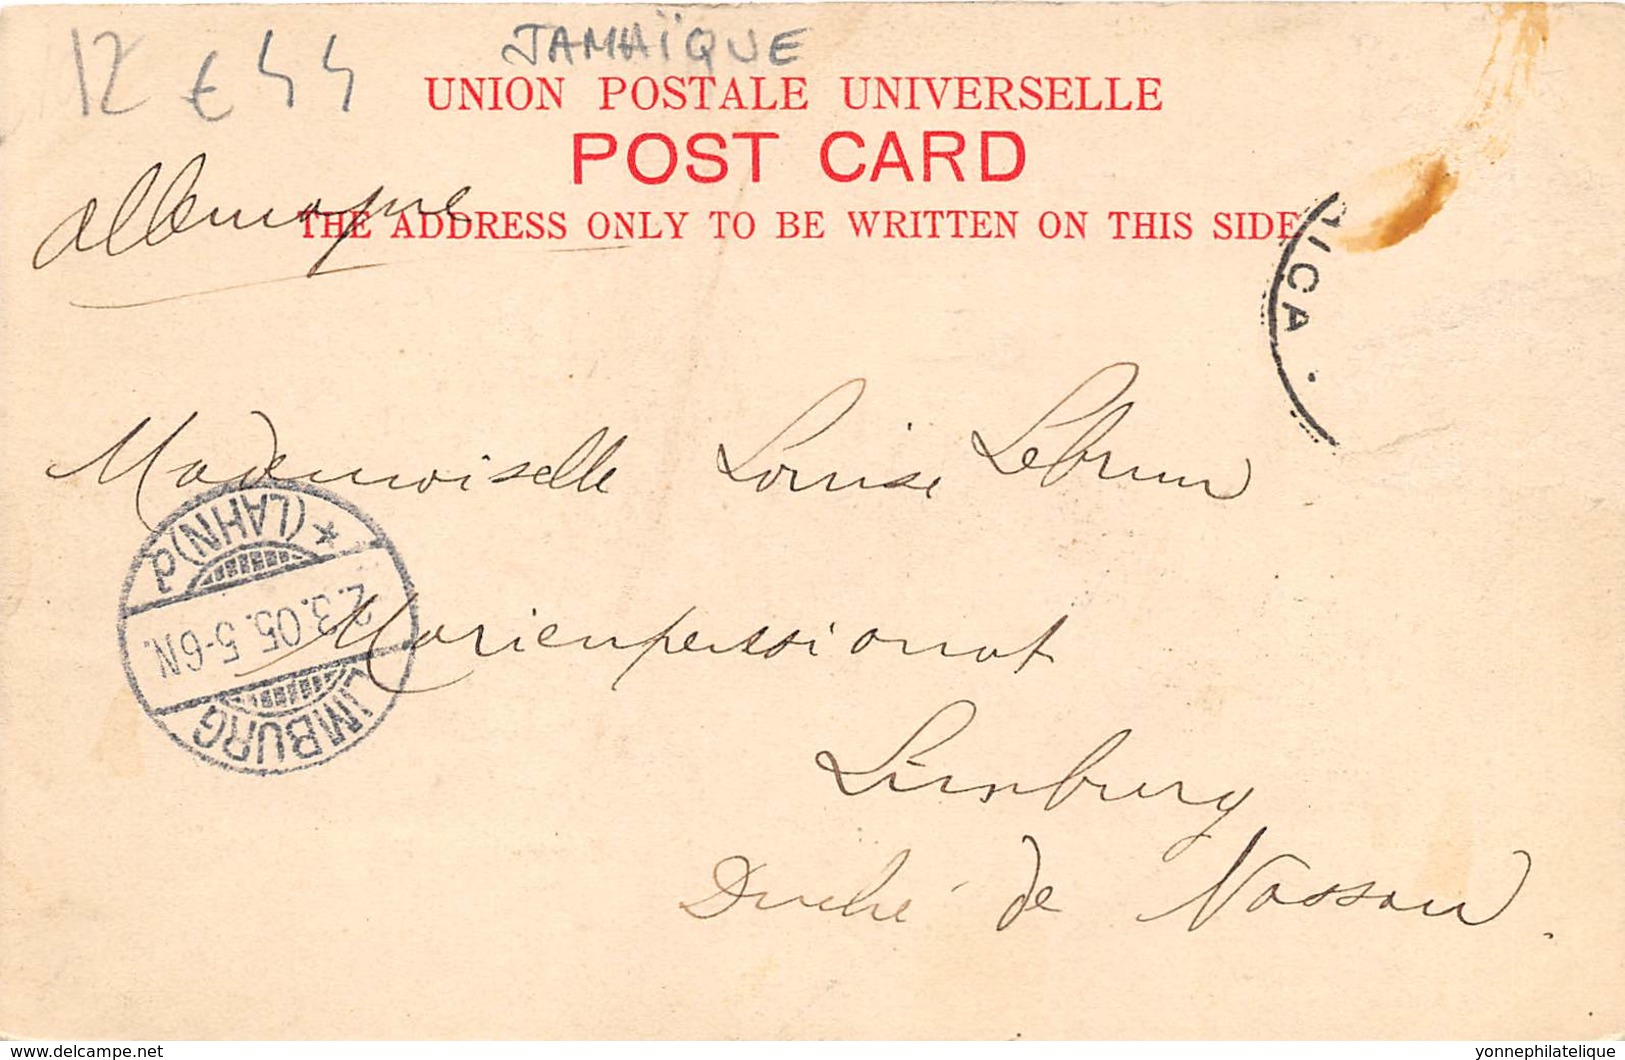 12 € 44
JAMAÏQUE
UNION POSTALE UNIVERSELLE
POST CARD
THE ADDRESS ONLY TO BE WRITTEN ON THIS SIDE
Allemagne
ICA
Mademoiselle Louise Lebrun
* (LAHN) d
2.3.05. 5-6N.
LIMBURG
Marienpensionat
Limburg
Duché de Nassau.
delcampe.net
yonnephilatelique